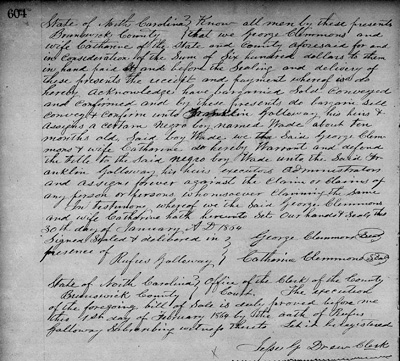 604
State of North Carolina } Know all men by these presents
Brunswick County } that we George Clemmons and
wife Catharine of the State and County aforesaid for and
in consideration of the Sum of Six hundred dollars to them
in hand paid at and before the Sealing and delivery of
these presents the receipt and payment whereof we do
hereby Acknowledge have bargained Sold Conveyed
and Confirmed and by these presents do bargain Sell
Convey & Confirm unto Franklin Galloway his heirs &
Assigns a certain Negro boy named Wade about
months old Said boy Wade we the Said George Clem
mons & wife Catharine do hereby Warrant and defend
the title to the Said negro boy Wade unto the Said Fr
anklin Galloway his heirs executors Administrators
and assigns forever against the Claim or Claims of
any person or persons whomsoever claiming the Same
In testimony whereof we the Said George Clemmons
and wife Catharine hath hereunto Set Our hands & Seals this
30th day of January A.D. 1864
Signed Sealed & delivered in } George Clemmons Seal
presence of }
Rufus Galloway } Catharine Clemmons Seal
State of North Carolina } Office of the Clerk of the County
Brunswick County } Court The execution
of the foregoing bill of Sale is duly proved before me
this day of February 1864 by the oath of Rufus
Galloway Subscribing witness thereto Let it be registered
Drew Clerk